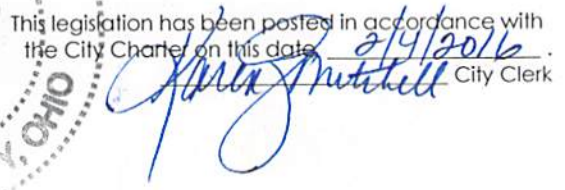 This legislation has been posted in accordance with
the City Charter on this date 2/4/2016 .
Karen J Mitchell City Clerk
, OHIO